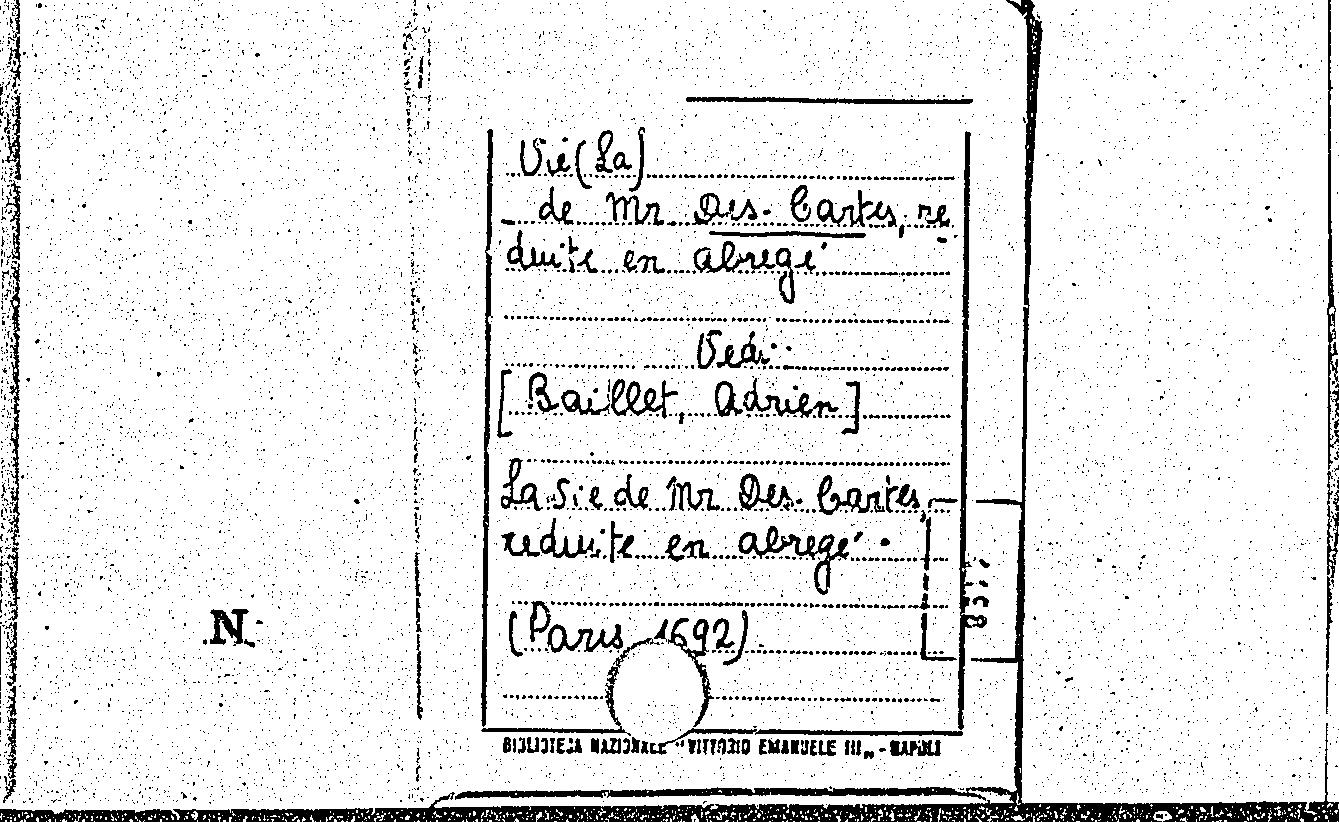 Vie (La)
_ de Mr Des-Cartes, re
duite en abregé
Vedi:
[Baillet, Adrien]
La Vie de Mr Des-Cartes,
reduite en abregé.
(Paris 1692).
N.
BIBLIOTECA NAZIONALE "VITTORIO EMANUELE III„ - NAPOLI